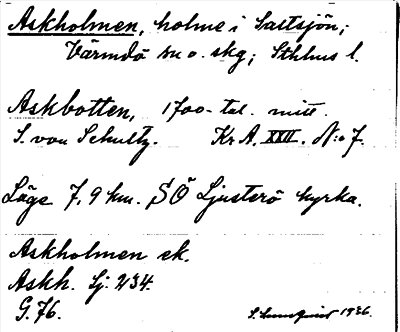 Askholmen, holme i Saltsjön;
Värmdö sn o. skg; Sthlms l.
Askbotten, 1700-tal. mitt.
S. von Schultz. Kr A. XXII. N:o 7.
Läge 7,9 km. SÖ Ljusterö kyrka.
Askholmen ek.
Askh. Lj. 234.
G. 76.
S. Lundqvist 1936.